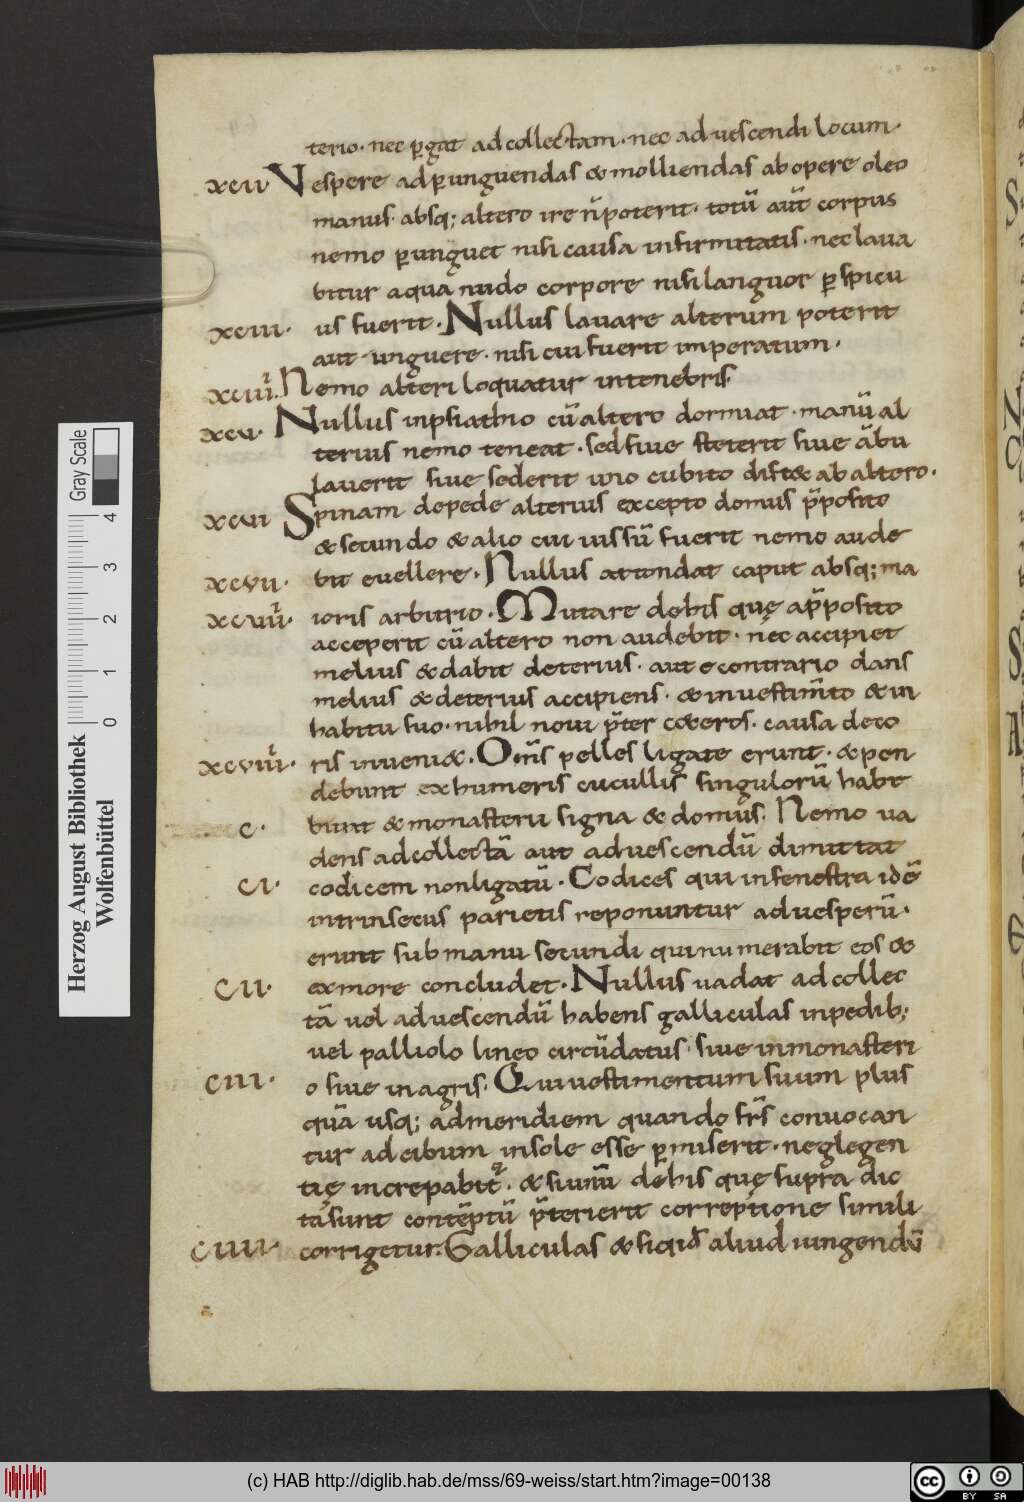 terio· nec ꝑgat ad collectam· nec ad vescendi locum·
xcii Vespere ad ꝑunguendas & molliendas ab opere oleo
manus· absq; altero ire ñ poterit· totū aūt corpus
nemo ꝑunguet nisi causa infirmitatis· nec lava
bitur aqua nudo corpore nisi languor ꝑspicu
xciii· us fuerit· Nullus lavare alterum poterit
aut unguere· nisi cui fuerit imperatum·
xciiii· Nemo alteri loquatur in tenebris·
xcv· Nullus in psiathio cū altero dormiat· manū al
terius nemo teneat· sed sive steterit sive ābu
laverit sive sederit uno cubito dist& ab altero·
xcvi Spinam de pede alterius excepto domus p̄posito
& secundo & alio cui iussū fuerit nemo aude
xcvii· bit evellere· Nullus attondat caput absq; ma
xcviii· ioris arbitrio· Mutare de his quę a p̄posito
acceperit cū altero non audebit· nec accipiet
melius & dabit deterius· aut e contrario dans
melius & deterius accipiens· & in vestim̄to & in
habitu suo· nihil novi p̄ter c&eros· causa deco
xcviiii· ris inveni&· Om̄s pelles ligate erunt· & pen
debunt ex humeris cuculli singulorū habe
c· bunt & monasterii signa & domus· Nemo va
dens ad collectā aut ad vescendū dimittat
ci· codicem non ligatū· Codices qui in fenestra idē
intrinsecus parietis reponuntur ad vesperū·
erunt sub manu secundi qui numerabit eos &
cii· ex more concludet· Nullus vadat ad collec
tā vel ad vescendū habens galliculas in pedib;
vel palliolo lineo circūdatus· sive in monasteri
ciii· o sive in agris· Qui vestimentum suum plus
quā usq; ad meridiem quando fr̄s convocan
tur ad cibum in sole esse ꝑmiserit· neglegen
tię increpabit· & si unū de his quę supra dic
ta sunt contēptū p̄terierit correptione simili
ciiii· corrigetur· Galliculas & si qid aliud iungendū
Herzog August Bibliothek
Wolfenbüttel
Gray Scale
0 1 2 3 4
(c) HAB http://diglib.hab.de/mss/69-weiss/start.htm?image=00138
cc BY SA